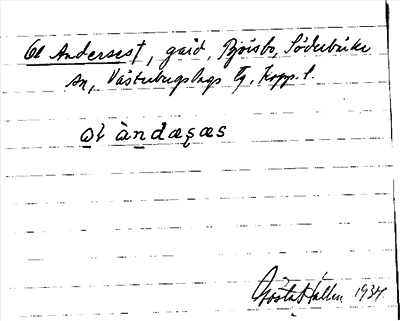 Ol Andersest, gård, Björsbo, Söderbärke
sn, Västerbergslags tg, Kopp. l.
o̱l àṉdæʂæs
Gösta Hallén 1934.